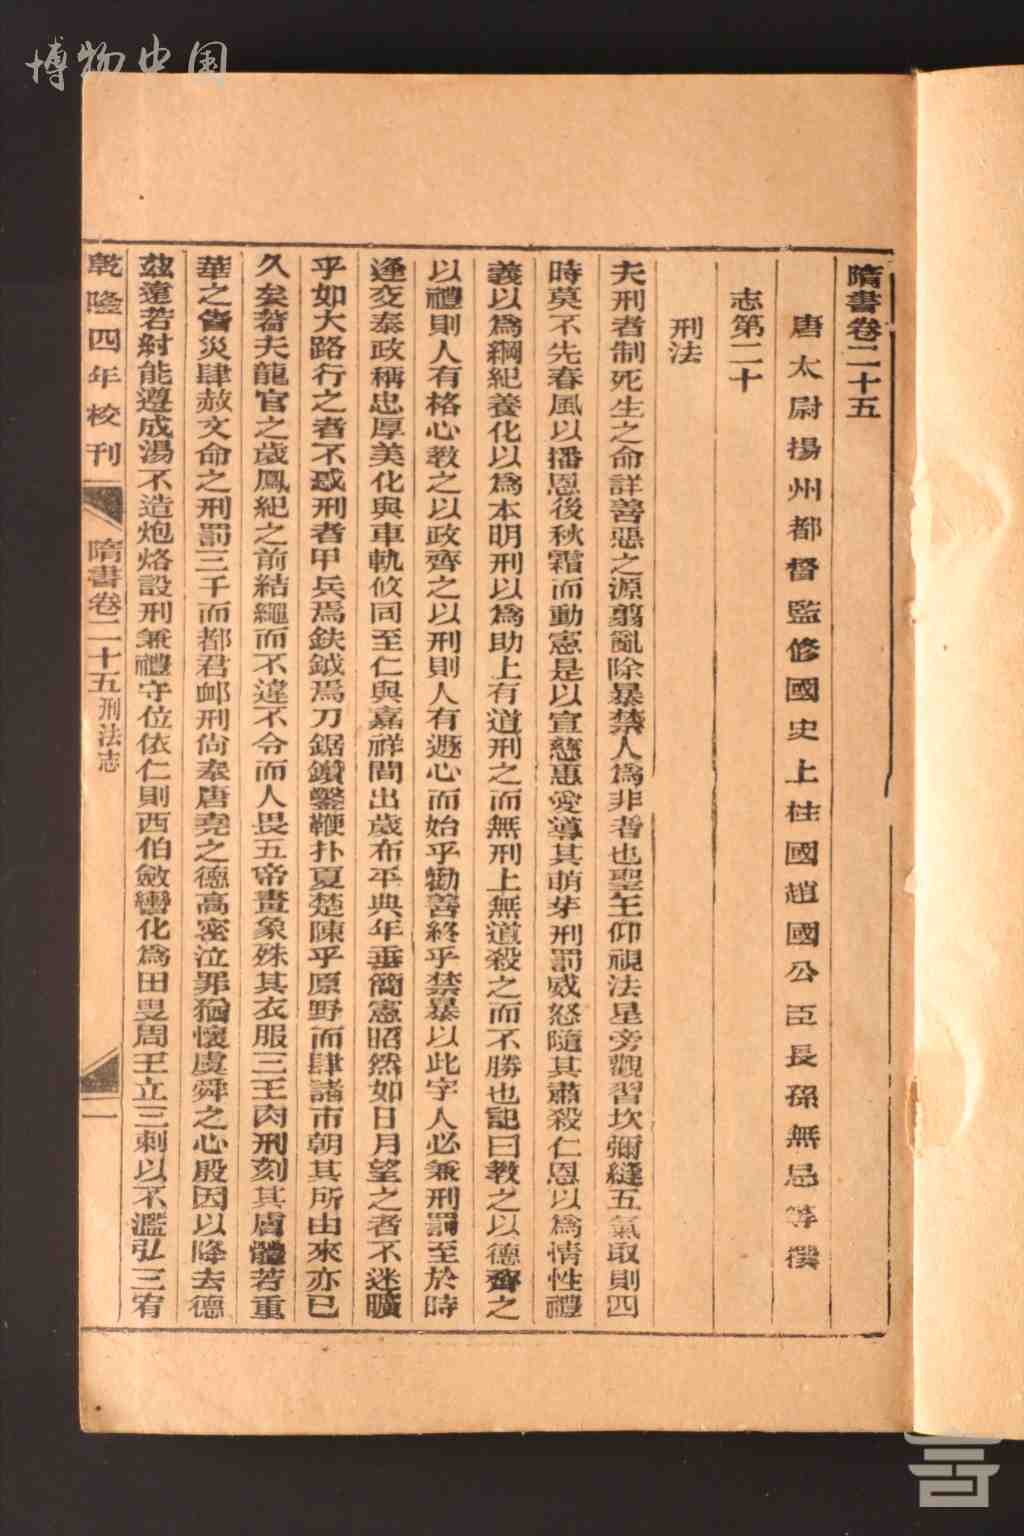 博物中国
隋書卷二十五
唐太尉揚州都督監修國史上柱國趙國公臣長孫無忌等撰
志第二十
刑法
夫刑者制死生之命詳善惡之源翦亂除暴禁人爲非者也聖王仰視法星旁觀習坎彌縫五氣取則四
時莫不先春風以播恩後秋霜而動憲是以宣慈惠愛導其萌芽刑罰威怒隨其肅殺仁恩以爲情性禮
義以爲綱紀養化以爲本明刑以爲助上有道刑之而無刑上無道殺之而不勝也記曰教之以德齊之
以禮則人有格心教之以政齊之以刑則人有遯心而始乎勸善終乎禁暴以此字人必兼刑罰至於時
逢交泰政稱忠厚美化與車軌攸同至仁與嘉祥間出歲布平典年垂簡憲昭然如日月望之者不迷曠
乎如大路行之者不惑刑者甲兵焉鈇鉞焉刀鋸鑽鑿鞭扑夏楚陳乎原野而肆諸市朝其所由來亦已
久矣若夫龍官之歲鳳紀之前結繩而不違不令而人畏五帝畫象殊其衣服三王肉刑刻其膚體若重
華之眚災肆赦文命之刑罰三千而都君卹刑尚奉唐堯之德高密泣罪猶懷虞舜之心殷因以降去德
茲遠若紂能遵成湯不造炮烙設刑兼禮守位依仁則西伯斂轡化爲田叟周王立三刺以不濫弘三宥
乾隆四年校刊
隋書卷二十五刑法志
一